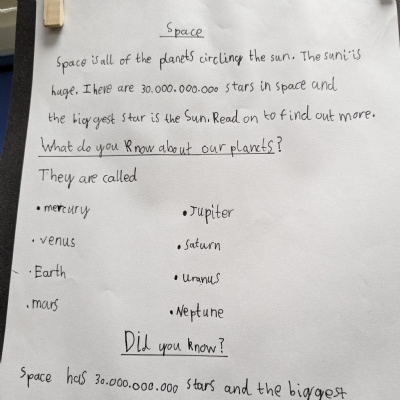 Space
Space is all of the planets circling the sun. The sun is
huge. There are 30.000.000.000 stars in space and
the biggest star is the Sun. Read on to find out more.
What do you know about our planets?
They are called
• mercury
• Jupiter
• venus
• Saturn
• Earth
• uranus
• mars
• Neptune
Did you know?
Space has 30.000.000.000 stars and the biggest